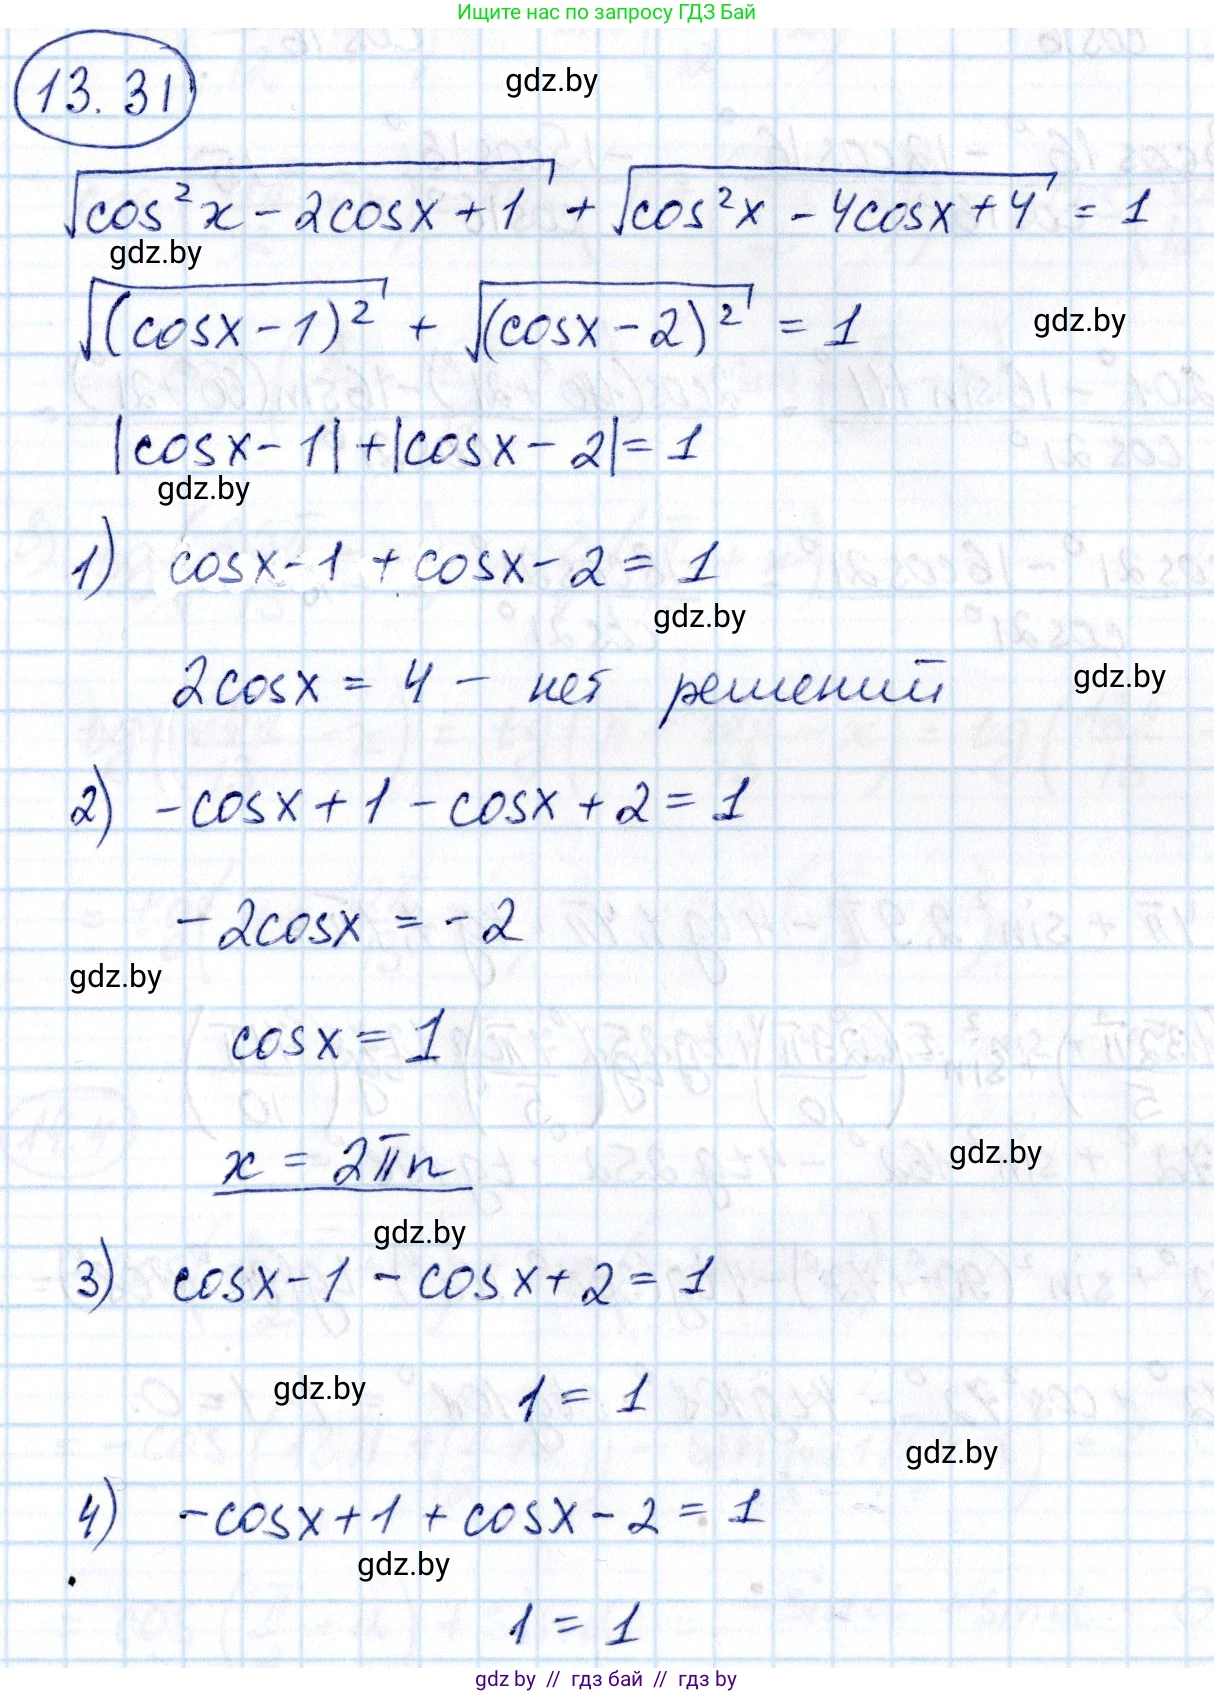 Ищите нас по запросу ГДЗ Бай
13.31
gdz.by
√(cos²x - 2cosx + 1) + √(cos²x - 4cosx + 4) = 1
gdz.by
√(cosx - 1)² + √(cosx - 2)² = 1
gdz.by
|cosx - 1| + |cosx - 2| = 1
gdz.by
1) cosx - 1 + cosx - 2 = 1
gdz.by
2cosx = 4 - нет решений
gdz.by
2) -cosx + 1 - cosx + 2 = 1
-2cosx = -2
gdz.by
cosx = 1
x = 2πn
gdz.by
gdz.by
3) cosx - 1 - cosx + 2 = 1
gdz.by
1 = 1
gdz.by
4) -cosx + 1 + cosx - 2 = 1
gdz.by
1 = 1
gdz.by // гдз бай // гдз by